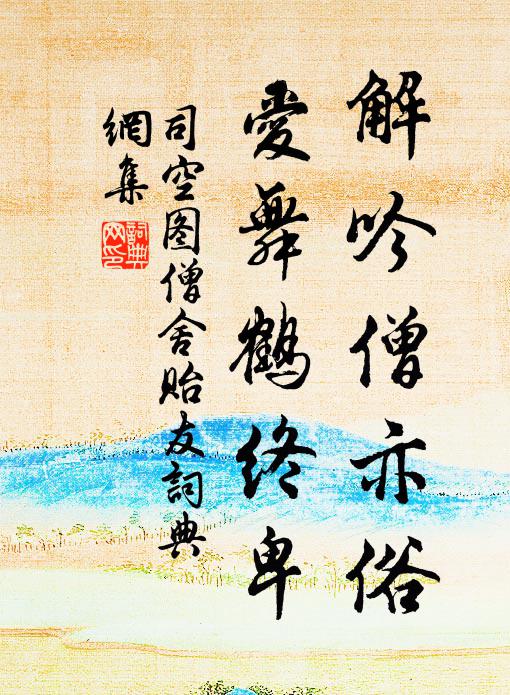 解吟僧亦俗
愛舞鶴終卑
司空图僧舍貽友詞典
網集
詞典
网印